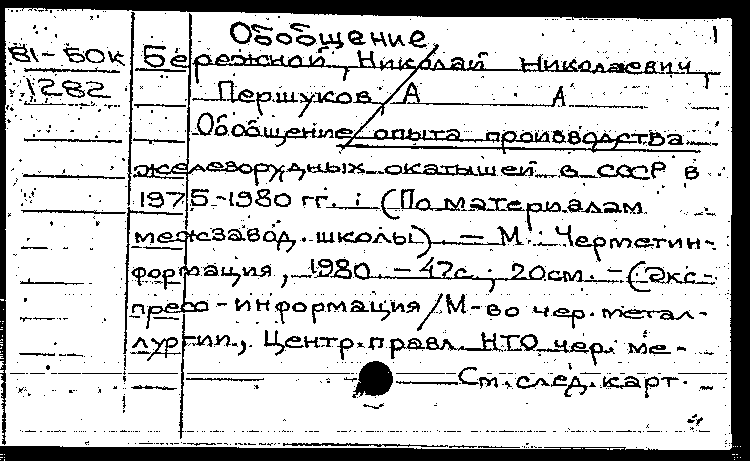 Обобщение
1
81-50к Бережной, Николай Николаевич,
1282 Першуков, А А
Обобщение опыта производства
железорудных окатышей в СССР в
1975-1980 гг. : (По материалам
межзавод. школы). — М : Черметин-
формация, 1980. - 42с. ; 20см. - (Экс-
пресс-информация / М-во чер. метал-
лургии., Центр. правл. НТО чер. ме-
См. след. карт.